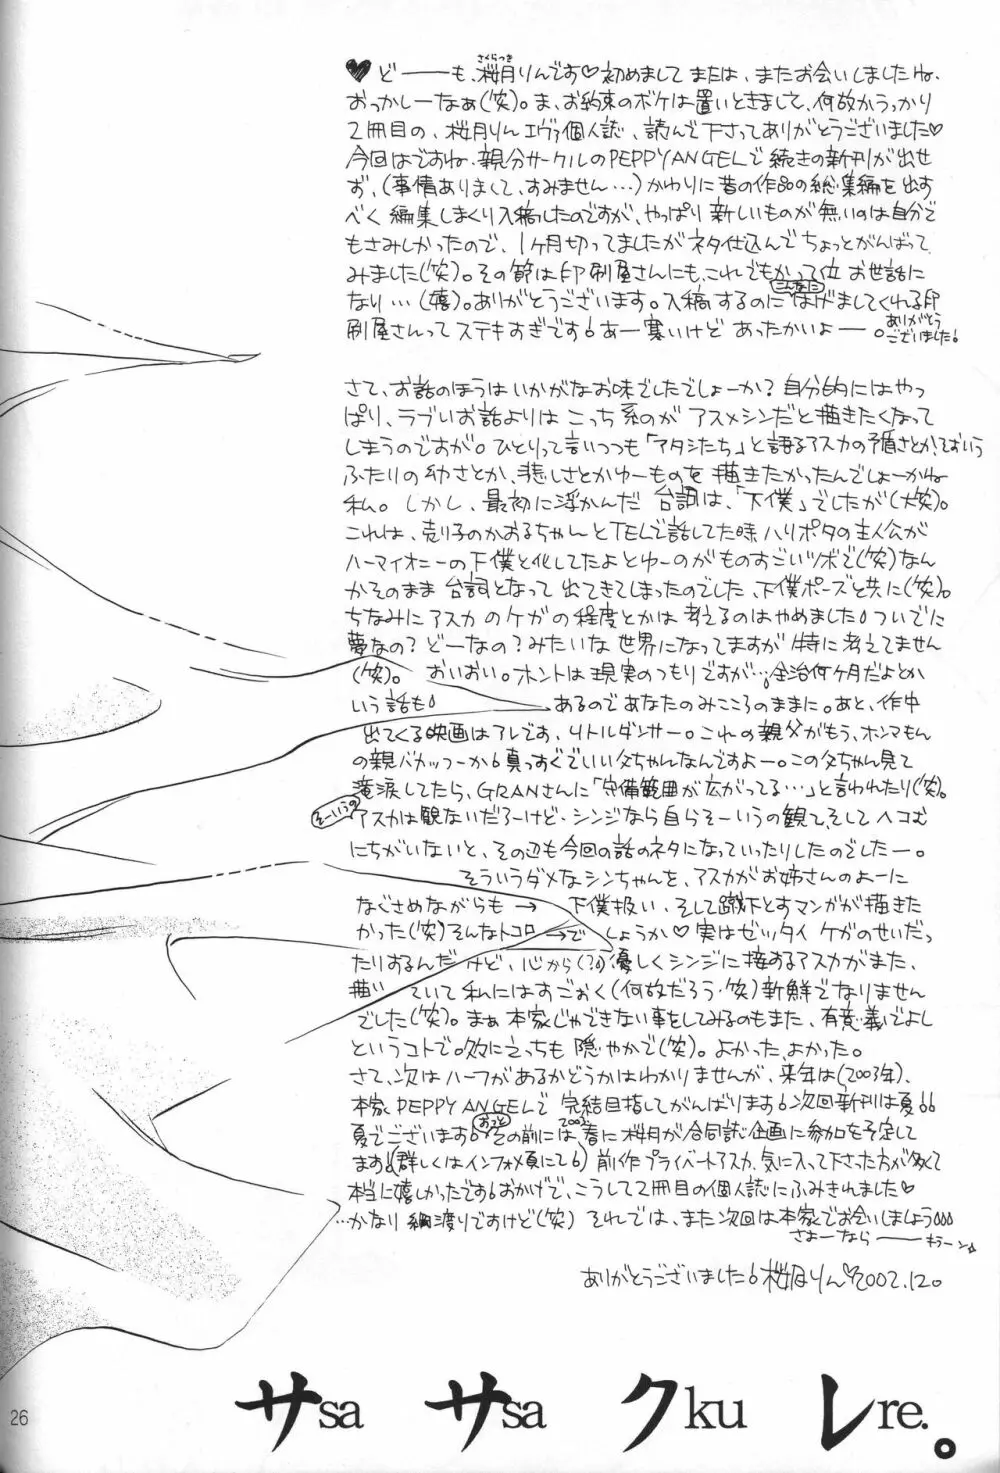 ♥どーーも、桜月りんです♡初めまして または、またお会いしましたね。
さくらつき
おっかしーなぁ(笑)。ま、お約束のボケは置いときまして、何故かうっかり
2冊目の、桜月りんエヴァ個人誌、読んで下さってありがとうございました♡
今回はですね、親分サークルのPEPPY ANGELで続きの新刊が出せ
ず、(事情ありまして、すみません…)かわりに昔の作品の総集編を出す
べく編集しまくり入稿したのですが、やっぱり新しいものが無いのは自分で
もさみしかったので、1ヶ月切ってましたがネタ仕込んでちょっとがんばって
みました(笑)。その節は印刷屋さんにも、これでもかって位お世話に
なり…(嬉)。ありがとうございます。入稿するのにこんなにはげましてくれる印
刷屋さんってステキすぎです!あー寒いけどあったかいよーー。ありがとうございました!
さて、お話のほうはいかがなお味でしたでしょーか?自分的にはやっ
ぱり、ラブいお話よりはこっち系のがアスメシンだと描きたくなって
しまうのですが。ひとりって言いつつも「アタシたち」と語るアスカの矛盾さとか、そおいう
ふたりの幼さとか、悲しさとかゆーものを描きたかったんでしょーかね
私。しかし、最初に浮かんだ台詞は、「下僕」でしたが(大笑)。
これは、売り子のかおるちゃんとTELで話してた時ハリポタの主人公が
ハーマイオニーの下僕と化してたよとゆーのがものすごいツボで(笑)なん
かそのまま台詞となって出てきてしまったのでした、下僕ポーズと共に(笑)。
ちなみにアスカのケガの程度とかは考えるのはやめました!ついでに
夢なの?どーなの?みたいな世界になってますが特に考えてません
(笑)。おいおい。ホントは現実のつもりですが…!全治何ヶ月だよとか
いう話も! あるのであなたのみこころのままに。あと、作中
出てくる映画はアレです、リトルダンサー。これの親父がもう、ホンマもん
の親バカッつーか!真っすぐでいい父ちゃんなんですよー。この父ちゃん見て
滝涙してたら、GRANさんに「守備範囲が広がってる…」と言われたり(笑)。
アスカはそーいうの観ないだろーけど、シンジなら自らそーいうの観て、そしてヘコむ
にちがいないと、その辺も今回の話のネタになっていったりしたのでしたー。
そういうダメなシンちゃんを、アスカがお姉さんのよーに
なぐさめながらも→下僕扱い、そして蹴下とすマンガが描きた
かった(笑)そんなトコロ→でしょうか♡実はゼッタイケガのせいだっ
たりおるんだけど、心から(?!)優しくシンジに接するアスカがまた、
描いていて私にはすごおく(何故だろう・笑)新鮮でなりません
でした(笑)。まぁ本家じゃできない事をしてみるのもまた、有意義でよし
というコトで。久々にえっちも隠やかで(笑)。よかった、よかった。
さて、次はハーフがあるかどうかはわかりませんが、来年は(2003年)、
本家PEPPY ANGELで完結目指してがんばります!次回新刊は夏!!
夏でございます!おっとその前には、2003春に桜月が合同誌企画に参加を予定して
ます!(詳しくはインフォメ頁にて!)前作プライベートアスカ、気に入って下さった方が多くて
本当に嬉しかったです!おかげで、こうして2冊目の個人誌にふみきれました♡
…かなり綱渡りですけど(笑)それでは、また次回は本家でお会いしましょう。。。
さよーならーーーキラーン☆
ありがとうございました!桜月りん♡2002.12。
サsa サsa クku レre.。
26